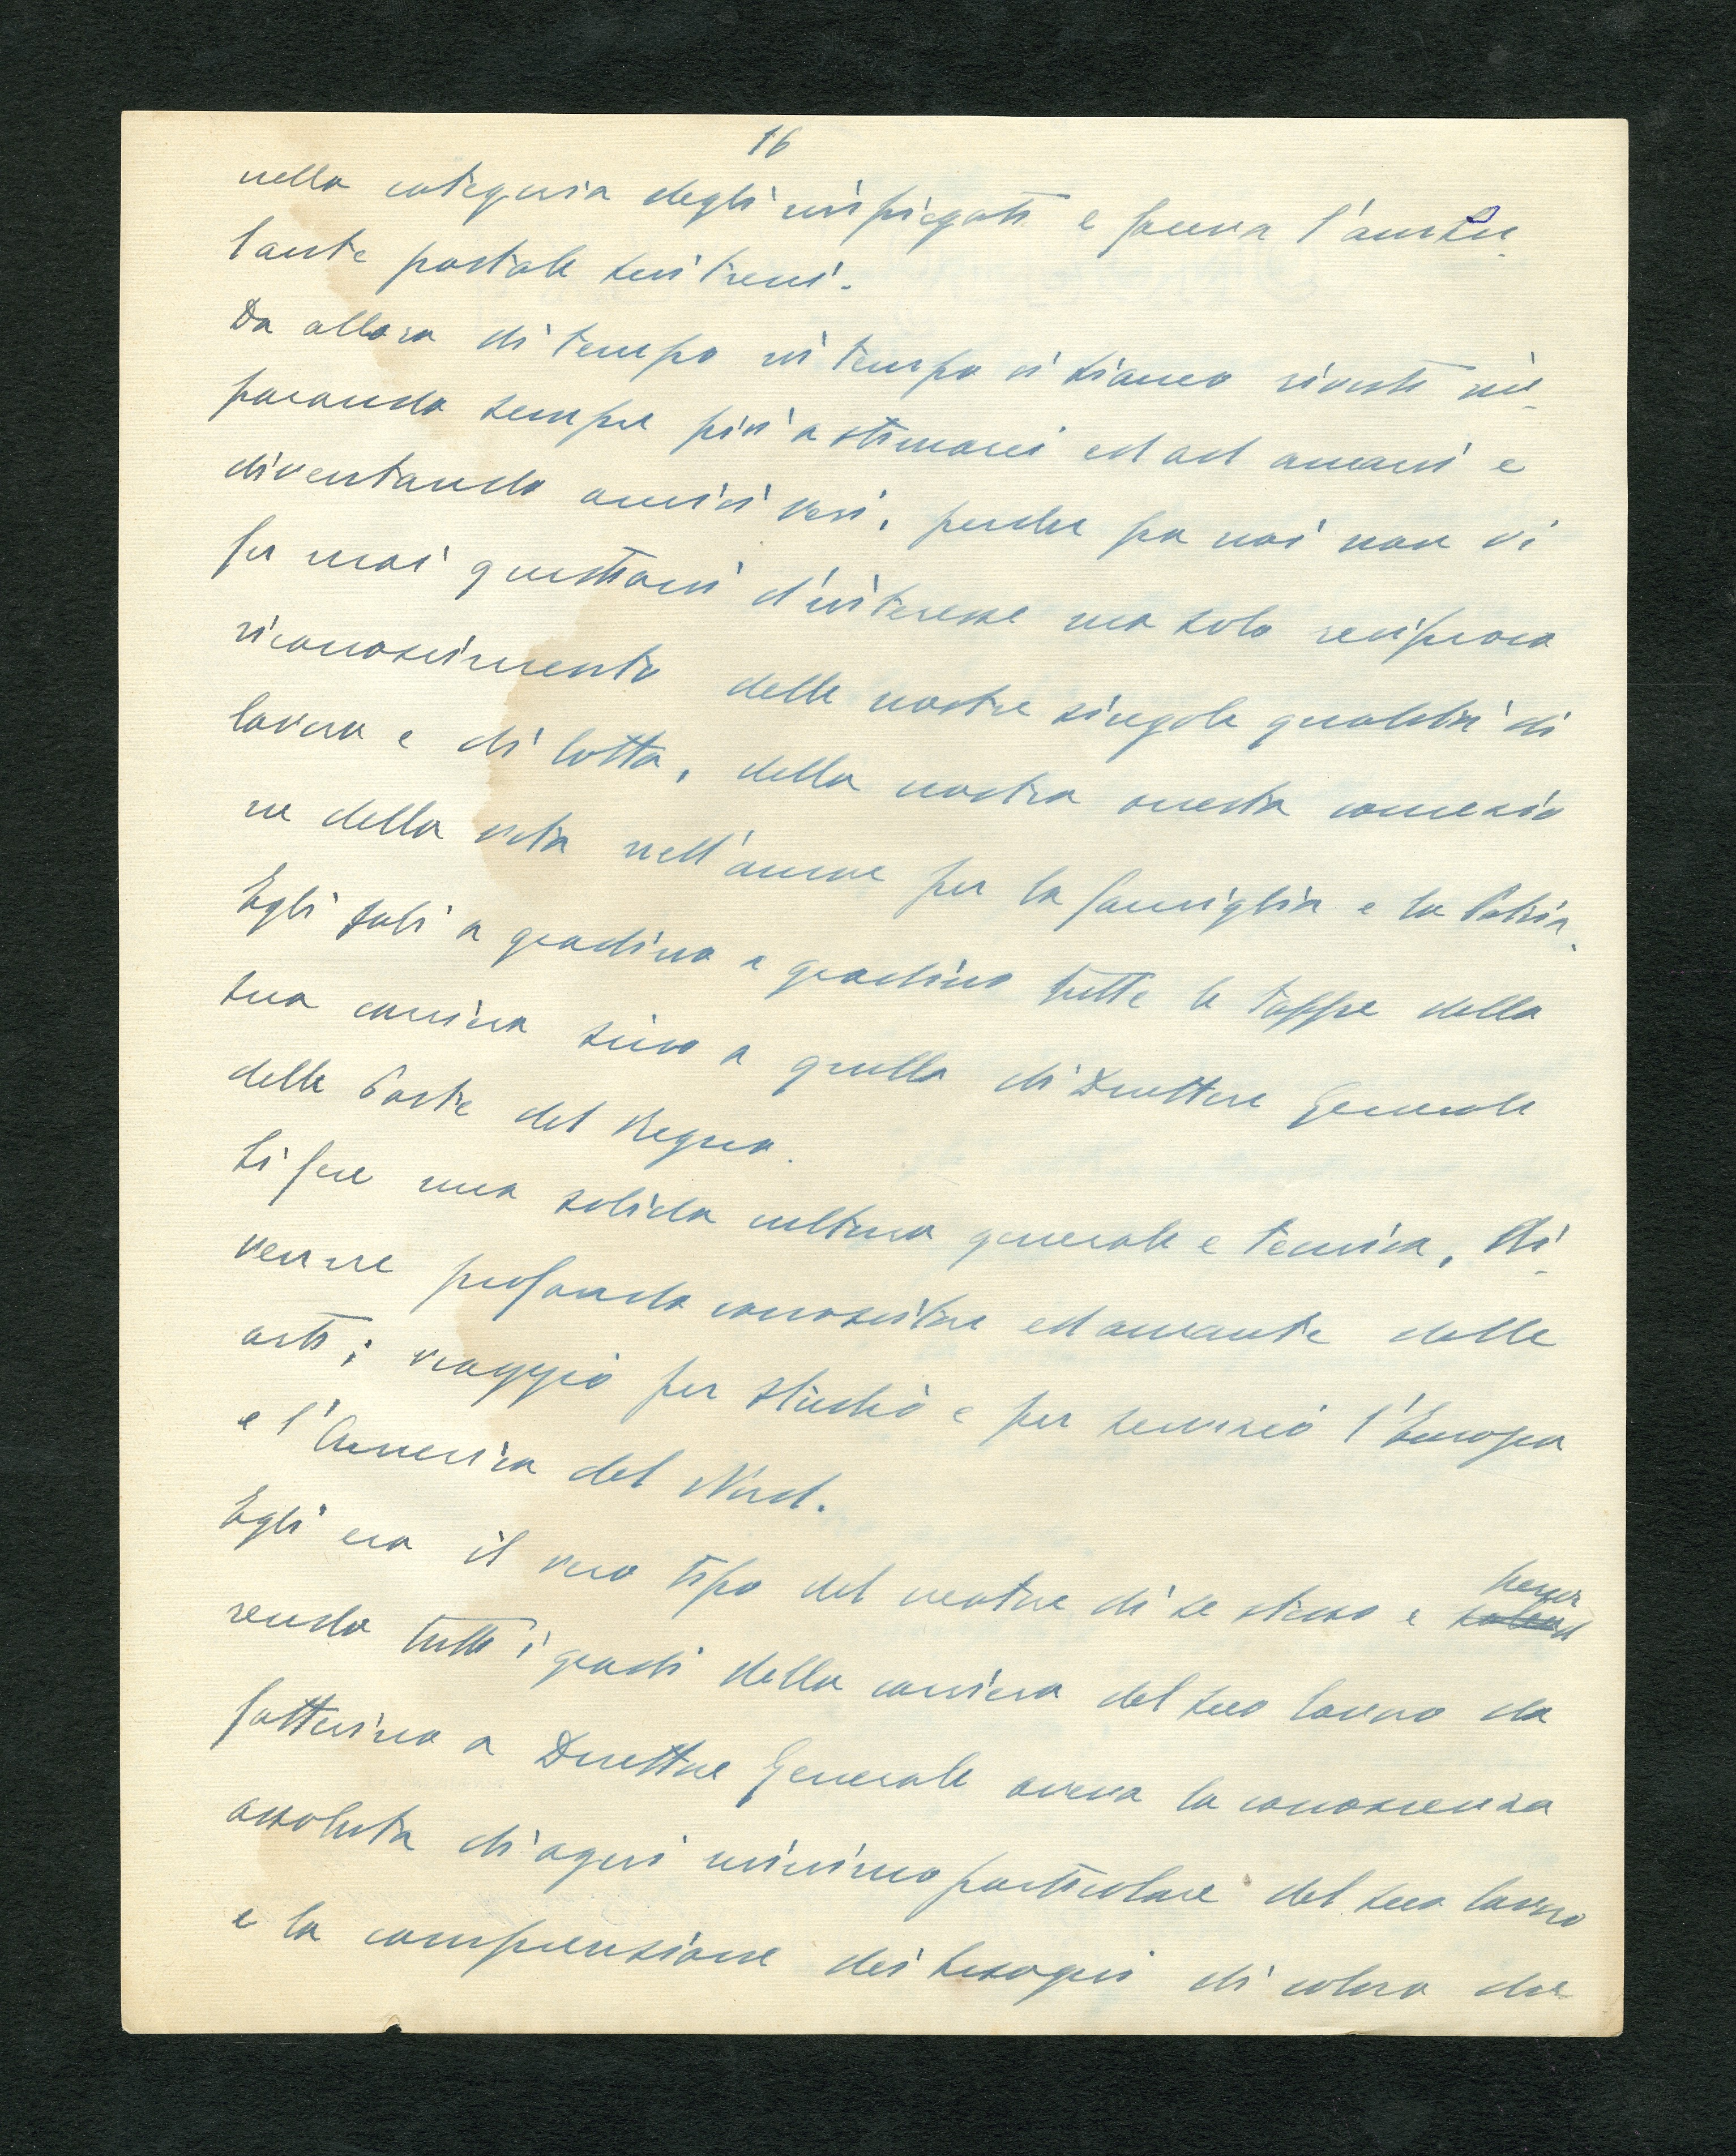 16
nella categoria degli impiegati e faceva l'ambu-
lante postale sui treni.
Da allora di tempo in tempo ci siamo rivisti im-
parando sempre più a stimarci ed ad amarci e
diventando amici veri, perchè fra noi non vi
fu mai questioni d'interesse ma solo reciproco
riconoscimento delle nostre singole qualità di
lavoro e di lotta, della nostra onesta concezio
ne della vita nell'amore per la famiglia e la Patria.
Egli salì a gradino a gradino tutte le tappe della
sua carriera sino a quella di Direttore Generale
delle Poste del Regno.
Si fece una solida cultura generale e tecnica, di-
venne profondo conoscitore ed amante delle
arti; viaggiò per studio e per servizio l'Europa
e l'America del Nord.
Egli era il vero tipo del creatore di se stesso e percor
rendo tutti i gradi della carriera del suo lavoro da
fattorino a Direttore Generale aveva la conoscenza
assoluta di ogni minimo particolare del suo lavoro
e la comprensione dei bisogni di coloro che